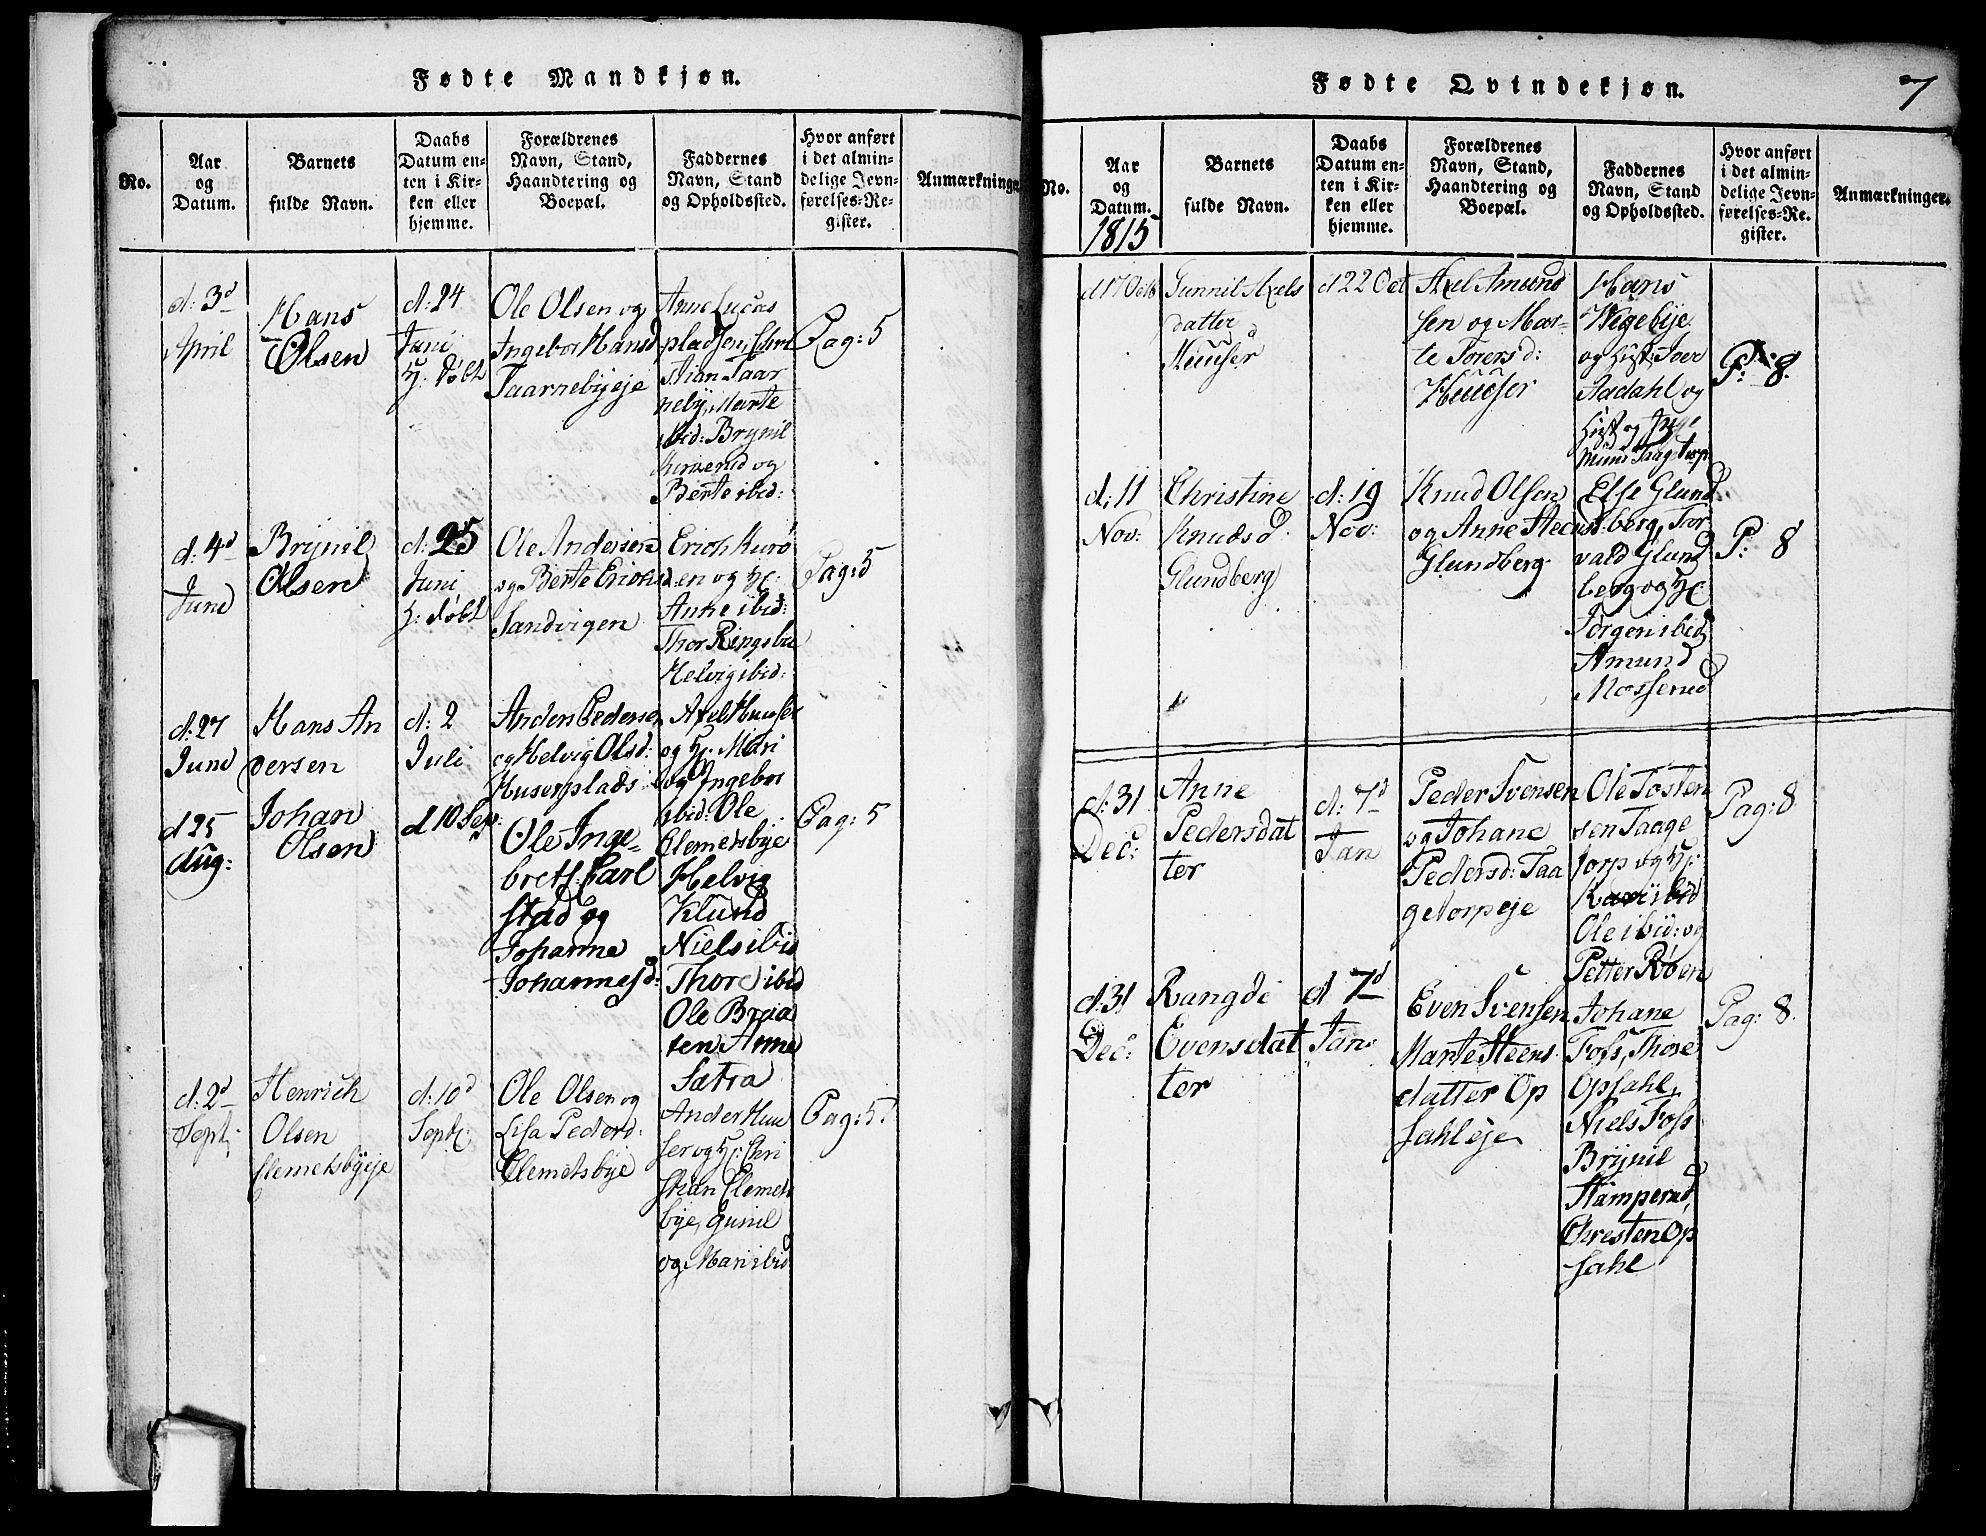 Fødte Mandkjøn.
No.
Aar
og
Datum.
Barnets
fulde Navn.
Daabs
Datum en-
ten i Kir-
ken eller
hjemme.
Forældrenes
Navn, Stand,
Haandtering og
Boepæl.
Faddernes
Navn, Stand
og Opholdssted.
Hvor anført
i det almin-
delige Jevn-
førelses-Re-
gister.
Anmærkninger.
d: 3d
April
Hans
Olsen
d: 24
Juni
H: døbt
Ole Olsen og
Ingebor Hansd
Taarnebyeje
Anne Lucas
pladsen, Chri
stian Taar
neby, Marte
ibid: Brynil
og
Berte ibid:
Pag: 5
d: 4d
Juni
Brynil
Olsen
d: 25
Juni
H: døbt
Ole Andersen
og Berte Erichsd
Sandvigen
Erich Kurø
en og H:
Anne ibid:
Thor Ringsbu
Helvig ibid:
Pag: 5
d: 27
Juni
Hans An
dersen
d: 2
Juli
Anders Pedersen
og Helvig Olsd:
Huserplads
Axel Huuser
og H: Mari
og Ingebor
ibid: Ole
Clemetsbye
d 25
Aug:
Johan
Olsen
d 10 Sep:
Ole Inge-
brets: Carl
stad og
Johanne
Johannesd:
Helvig
Klund
Niels ibid
Thore ibid
Ole Braa
ten Anne
Sætra
Pag: 5
d: 2d
Sept:
Henrich
Olsen
Clemetsbyeje
d: 10d
Sept:
Ole Olsen og
Lisa Pedersd:
Clemetsbye
Ander Huu
ser og H: Chri
stian Clemets
bye, Gunil
og Mari ibid
Pag: 5.
Fødte Qvindekjøn.
7
No.
Aar
og
Datum.
1815
Barnets
fulde Navn.
Daabs
Datum en-
ten i Kir-
ken eller
hjemme.
Forældrenes
Navn, Stand,
Haandtering og
Boepæl.
Faddernes
Navn, Stand
og Opholdssted.
Hvor anført
i det almin-
delige Jevn-
førelses-Re-
gister.
Anmærkninger.
d 17 Octb
Gunnil Axels
datter
Huuser
d 22 Oct
Axel Amund
sen og Mar-
te Torersd:
Huuser
Hans
Wegebye
og Hust: Tore
Aadahl og
Hust og
P: 8.
d: 11
Nov:
Christine
Knudsd
Glundberg
d: 19
Nov:
Knud Olsen
og Anne Steensd
Glundberg
Else Glund
berg, Tor
vald Glund
berg og H:
Jørgen ibid
Amund
Mosserud
P: 8
d: 31
Dec:
Anne
Pedersdat
ter
d: 7d
Jan
Peder Svensen
og Johane
Pedersd: Taa
getorpeje
Ole Tosten
sen Taage
torp og H:
Kari ibid
Ole ibid: og
Petter Røen
Pag: 8
d: 31
Dec:
Rangdi
Evensdat
ter
d 7d
Jan:
Even Svensen
Marte Steens
datter Op
sahleje
Johane
Foss, Thore
Opsahl,
Niels Foss
Brynil
Stamperud,
Christen Op
sahl
Pag: 8.